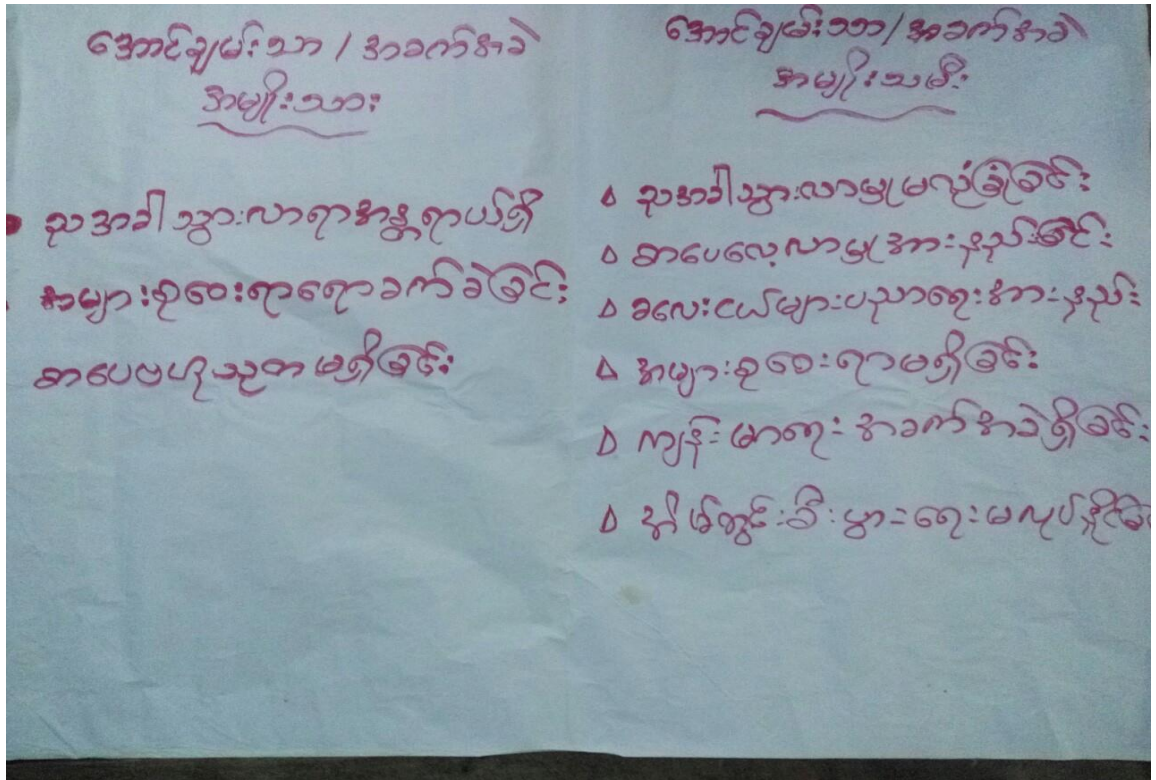 အောင်ချမ်းသာ / အခက်အခဲ
အမျိုးသား
ညအခါ သွားလာရာအန္တရာယ်ရှိ
အများစုဝေးရာရောခက်ခဲခြင်း
စာပေဗဟုသုတ မရှိခြင်း
အောင်ချမ်းသာ / အခက်အခဲ
အမျိုးသမီး
ညအခါသွားလာမှုမလုံခြုံခြင်း
စာပေလေ့လာမှုအားနည်းခြင်း
ခလေးငယ်များပညာရေးအားနည်း
အများစုဝေးရာမရှိခြင်း
ကျန်းမာရေး အခက်အခဲရှိခြင်း
အိမ်တွင်းစီးပွားရေးမလုပ်နိုင်